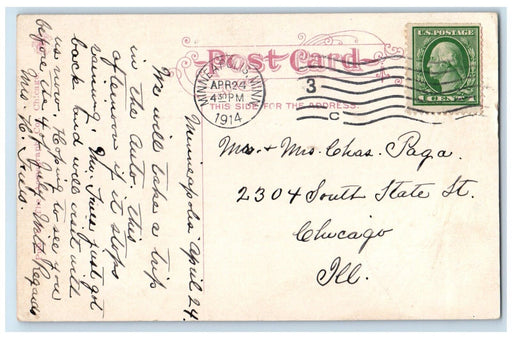 Post Card
THIS SIDE FOR THE ADDRESS.
MINNEAPOLIS, MINN.
APR 24
4 30 PM
1914
3
C
U.S. POSTAGE
1 CENT 1
Mr. & Mrs. Chas. Paga.
2304 South State St.
Chicago
Ill.
Minneapolis April 24.
We will take a trip
in the auto. this
afternoon if it stops
raining. Mr. just got
back and will visit with
us now Hoping to see you
before the 4 July. With Regards
Mrs. H.